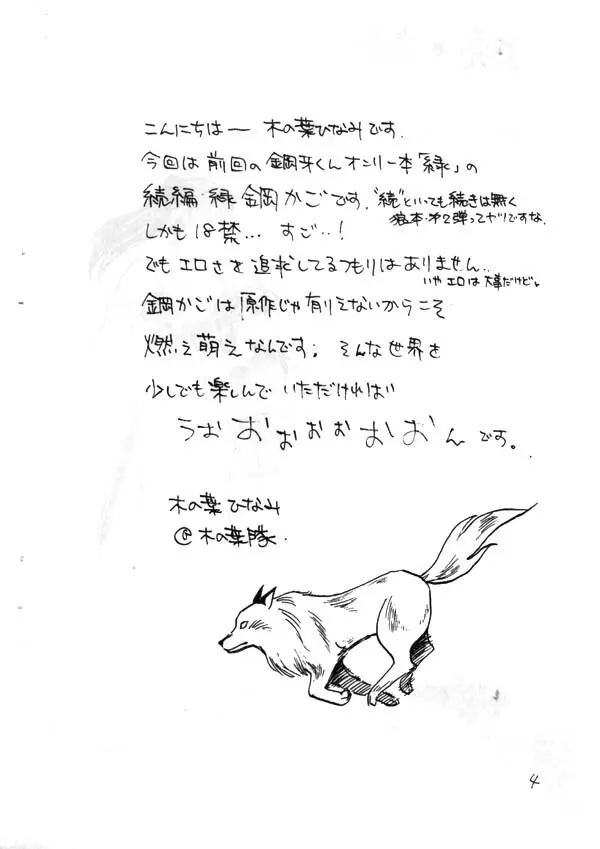 こんにちはー 木の葉ひなみです.
今回は前回の鋼牙くんオンリー本「緑」の
続編・緑 鋼かごです. "続"といっても続きは無く
しかも18禁… すご…!
でもエロさを追求してるつもりはありません…
いやエロは大事だけど。
鋼かごは原作じゃ有りえないからこそ
燃え萌えなんです。そんな世界を
少しでも楽しんでいただければ
うおおぉぉぉおおんです。
木の葉ひなみ
@木の葉隊.
4